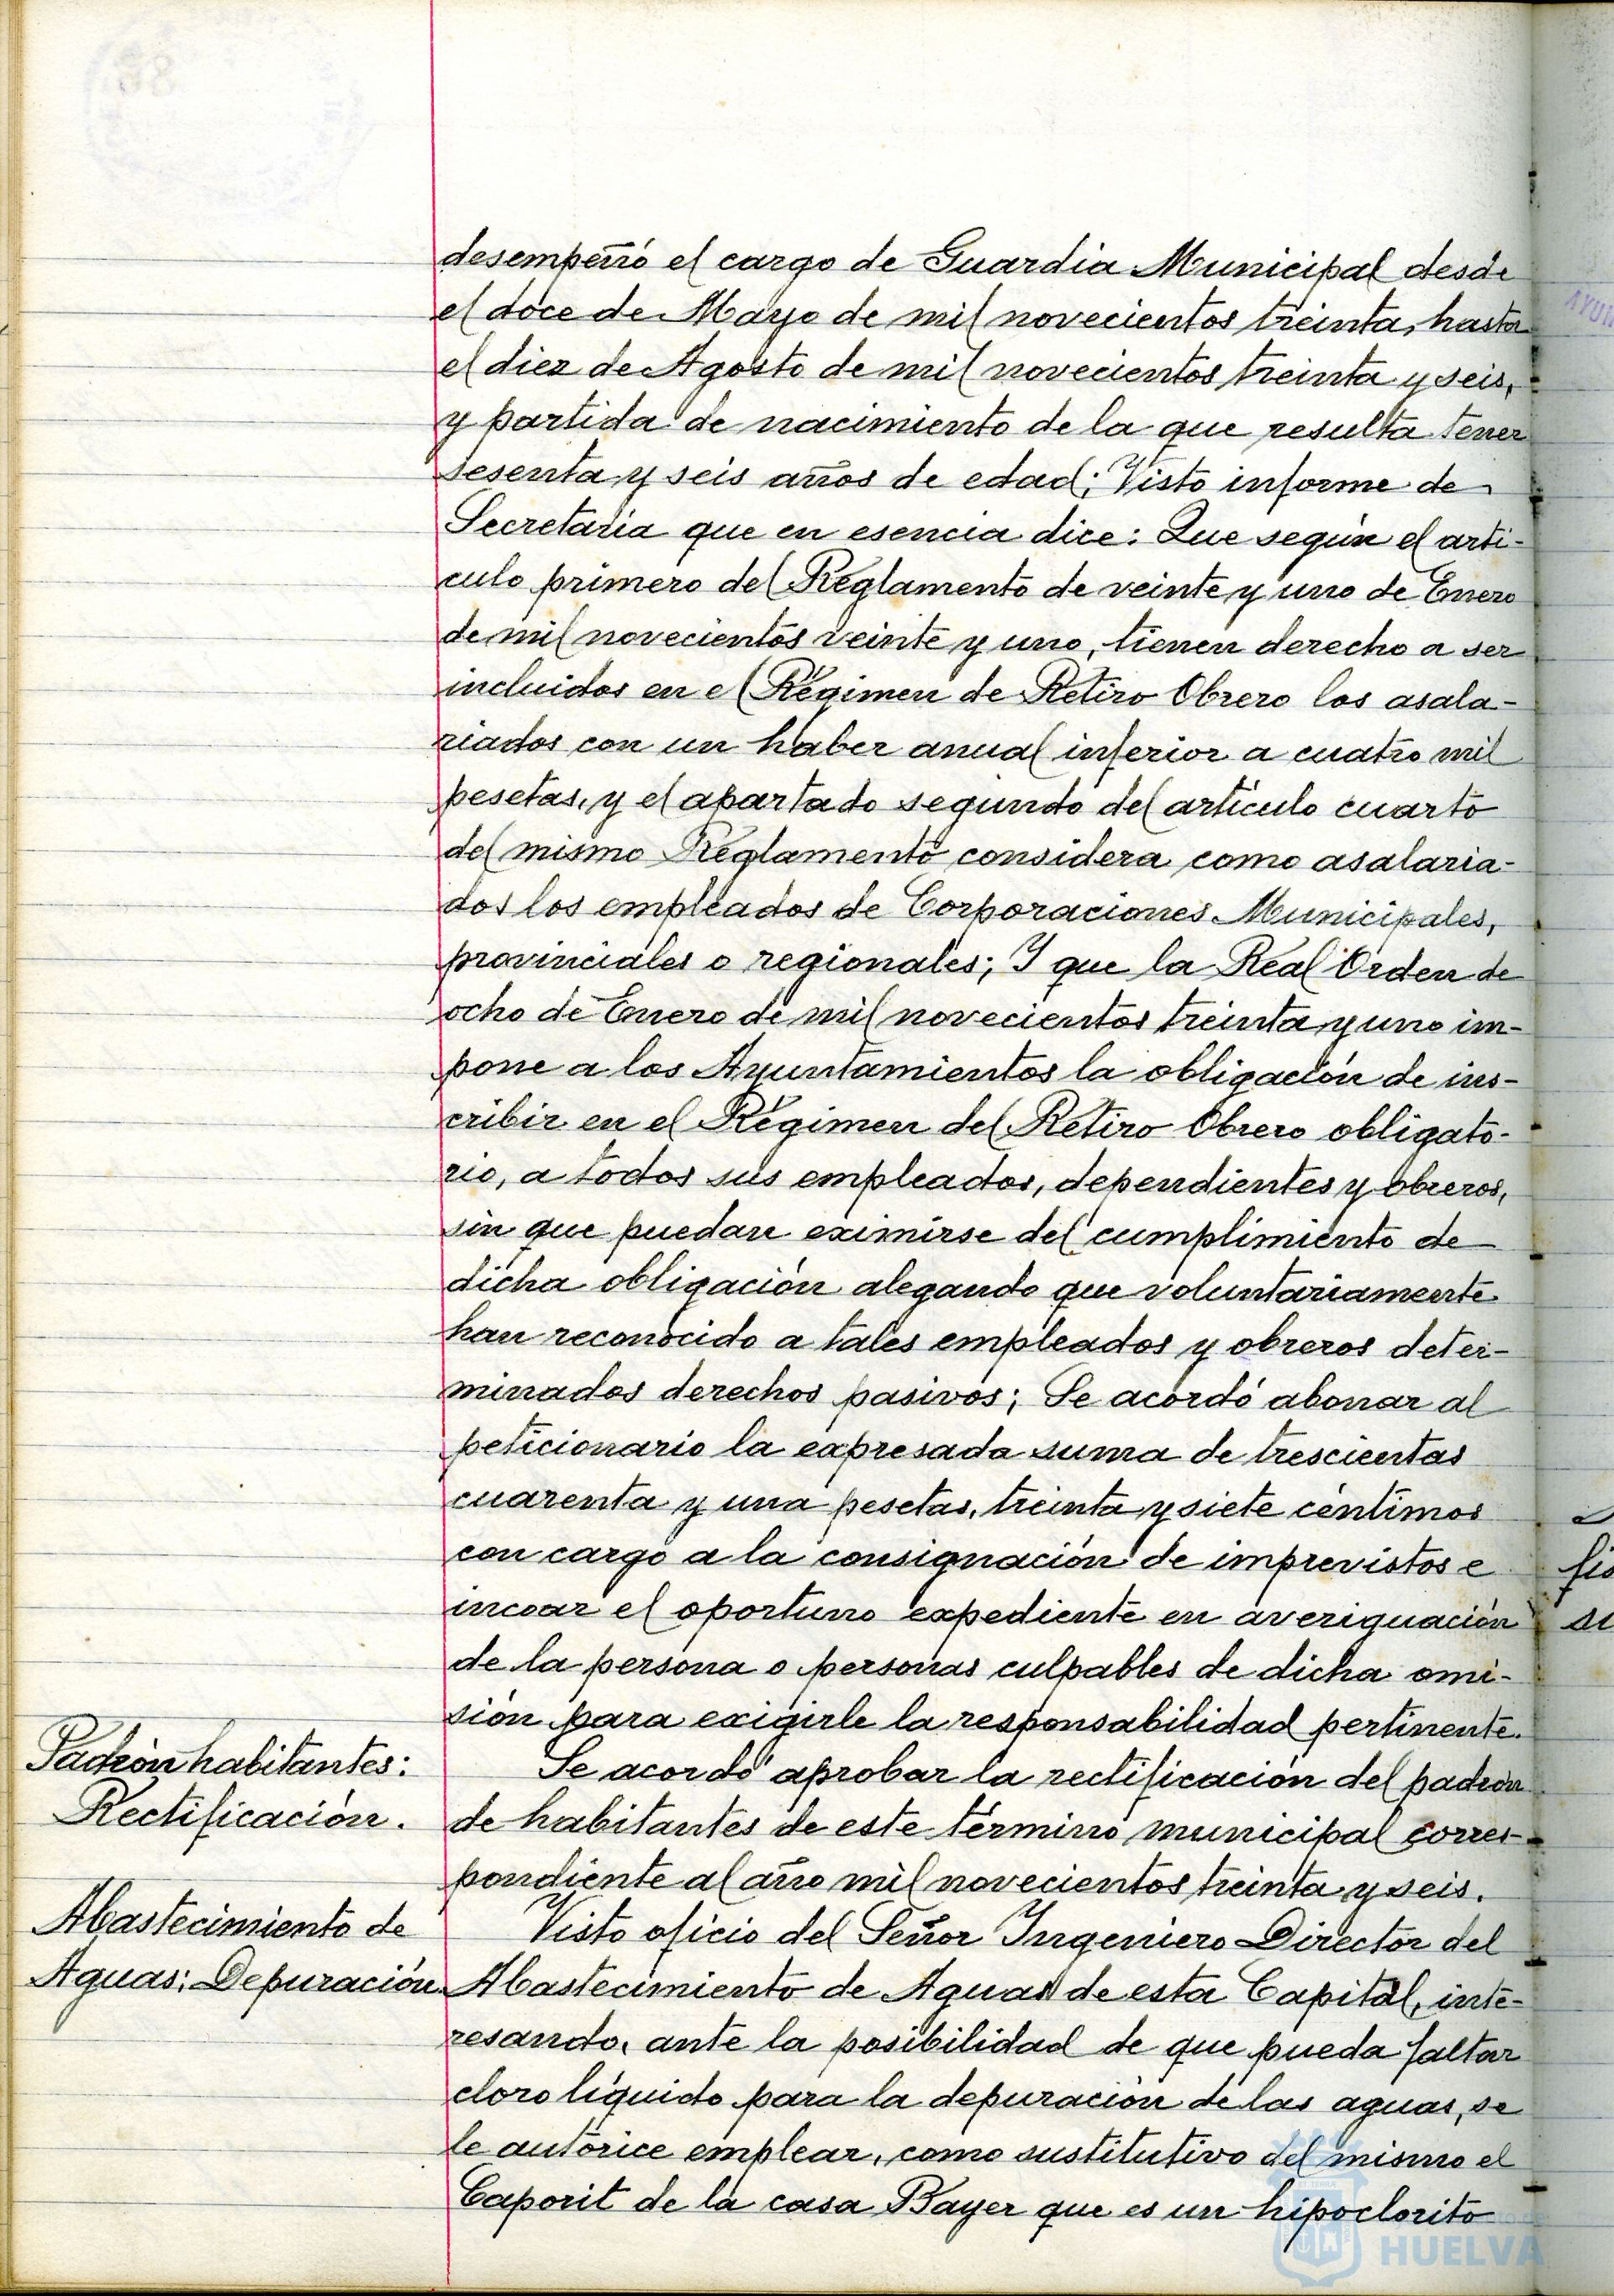 desempeñó el cargo de Guardia Municipal desde
el doce de Mayo de mil novecientos treinta, hasta
el diez de Agosto de mil novecientos treinta y seis,
y partida de nacimiento de la que resulta tener
sesenta y seis años de edad; Visto informe de
Secretaria que en esencia dice: Que según el arti-
culo primero del Reglamento de veinte y uno de Enero
de mil novecientos veinte y uno, tienen derecho a ser
incluidos en el Régimen de Retiro Obrero los asala-
riados con un haber anual inferior a cuatro mil
pesetas, y el apartado segundo del artículo cuarto
del mismo Reglamento considera como asalaria-
dos los empleados de Corporaciones Municipales,
provinciales o regionales; Y que la Real Orden de
ocho de Enero de mil novecientos treinta y uno im-
pone a los Ayuntamientos la obligación de ins-
cribir en el Régimen del Retiro Obrero obligato-
rio, a todos sus empleados, dependientes y obreros,
sin que puedan eximirse del cumplimiento de
dicha obligación alegando que voluntariamente
han reconocido a tales empleados y obreros deter-
minados derechos pasivos; Se acordó abonar al
peticionario la expresada suma de trescientas
cuarenta y una pesetas, treinta y siete céntimos
con cargo a la consignación de imprevistos e
incoar el oportuno expediente en averiguación
de la persona o personas culpables de dicha omi-
sión para exigirle la responsabilidad pertinente.
Padrón habitantes:
Rectificación.
Se acordó aprobar la rectificación del padrón
de habitantes de este término municipal corres-
pondiente al año mil novecientos treinta y seis.
Abastecimiento de
Aguas: Depuración
Visto oficio del Señor Ingeniero Director del
Abastecimiento de Aguas de esta Capital, inte-
resando, ante la posibilidad de que pueda faltar
cloro líquido para la depuración de las aguas, se
le autorice emplear, como sustitutivo del mismo el
Caporit de la casa Bayer que es un hipoclorito
HUELVA